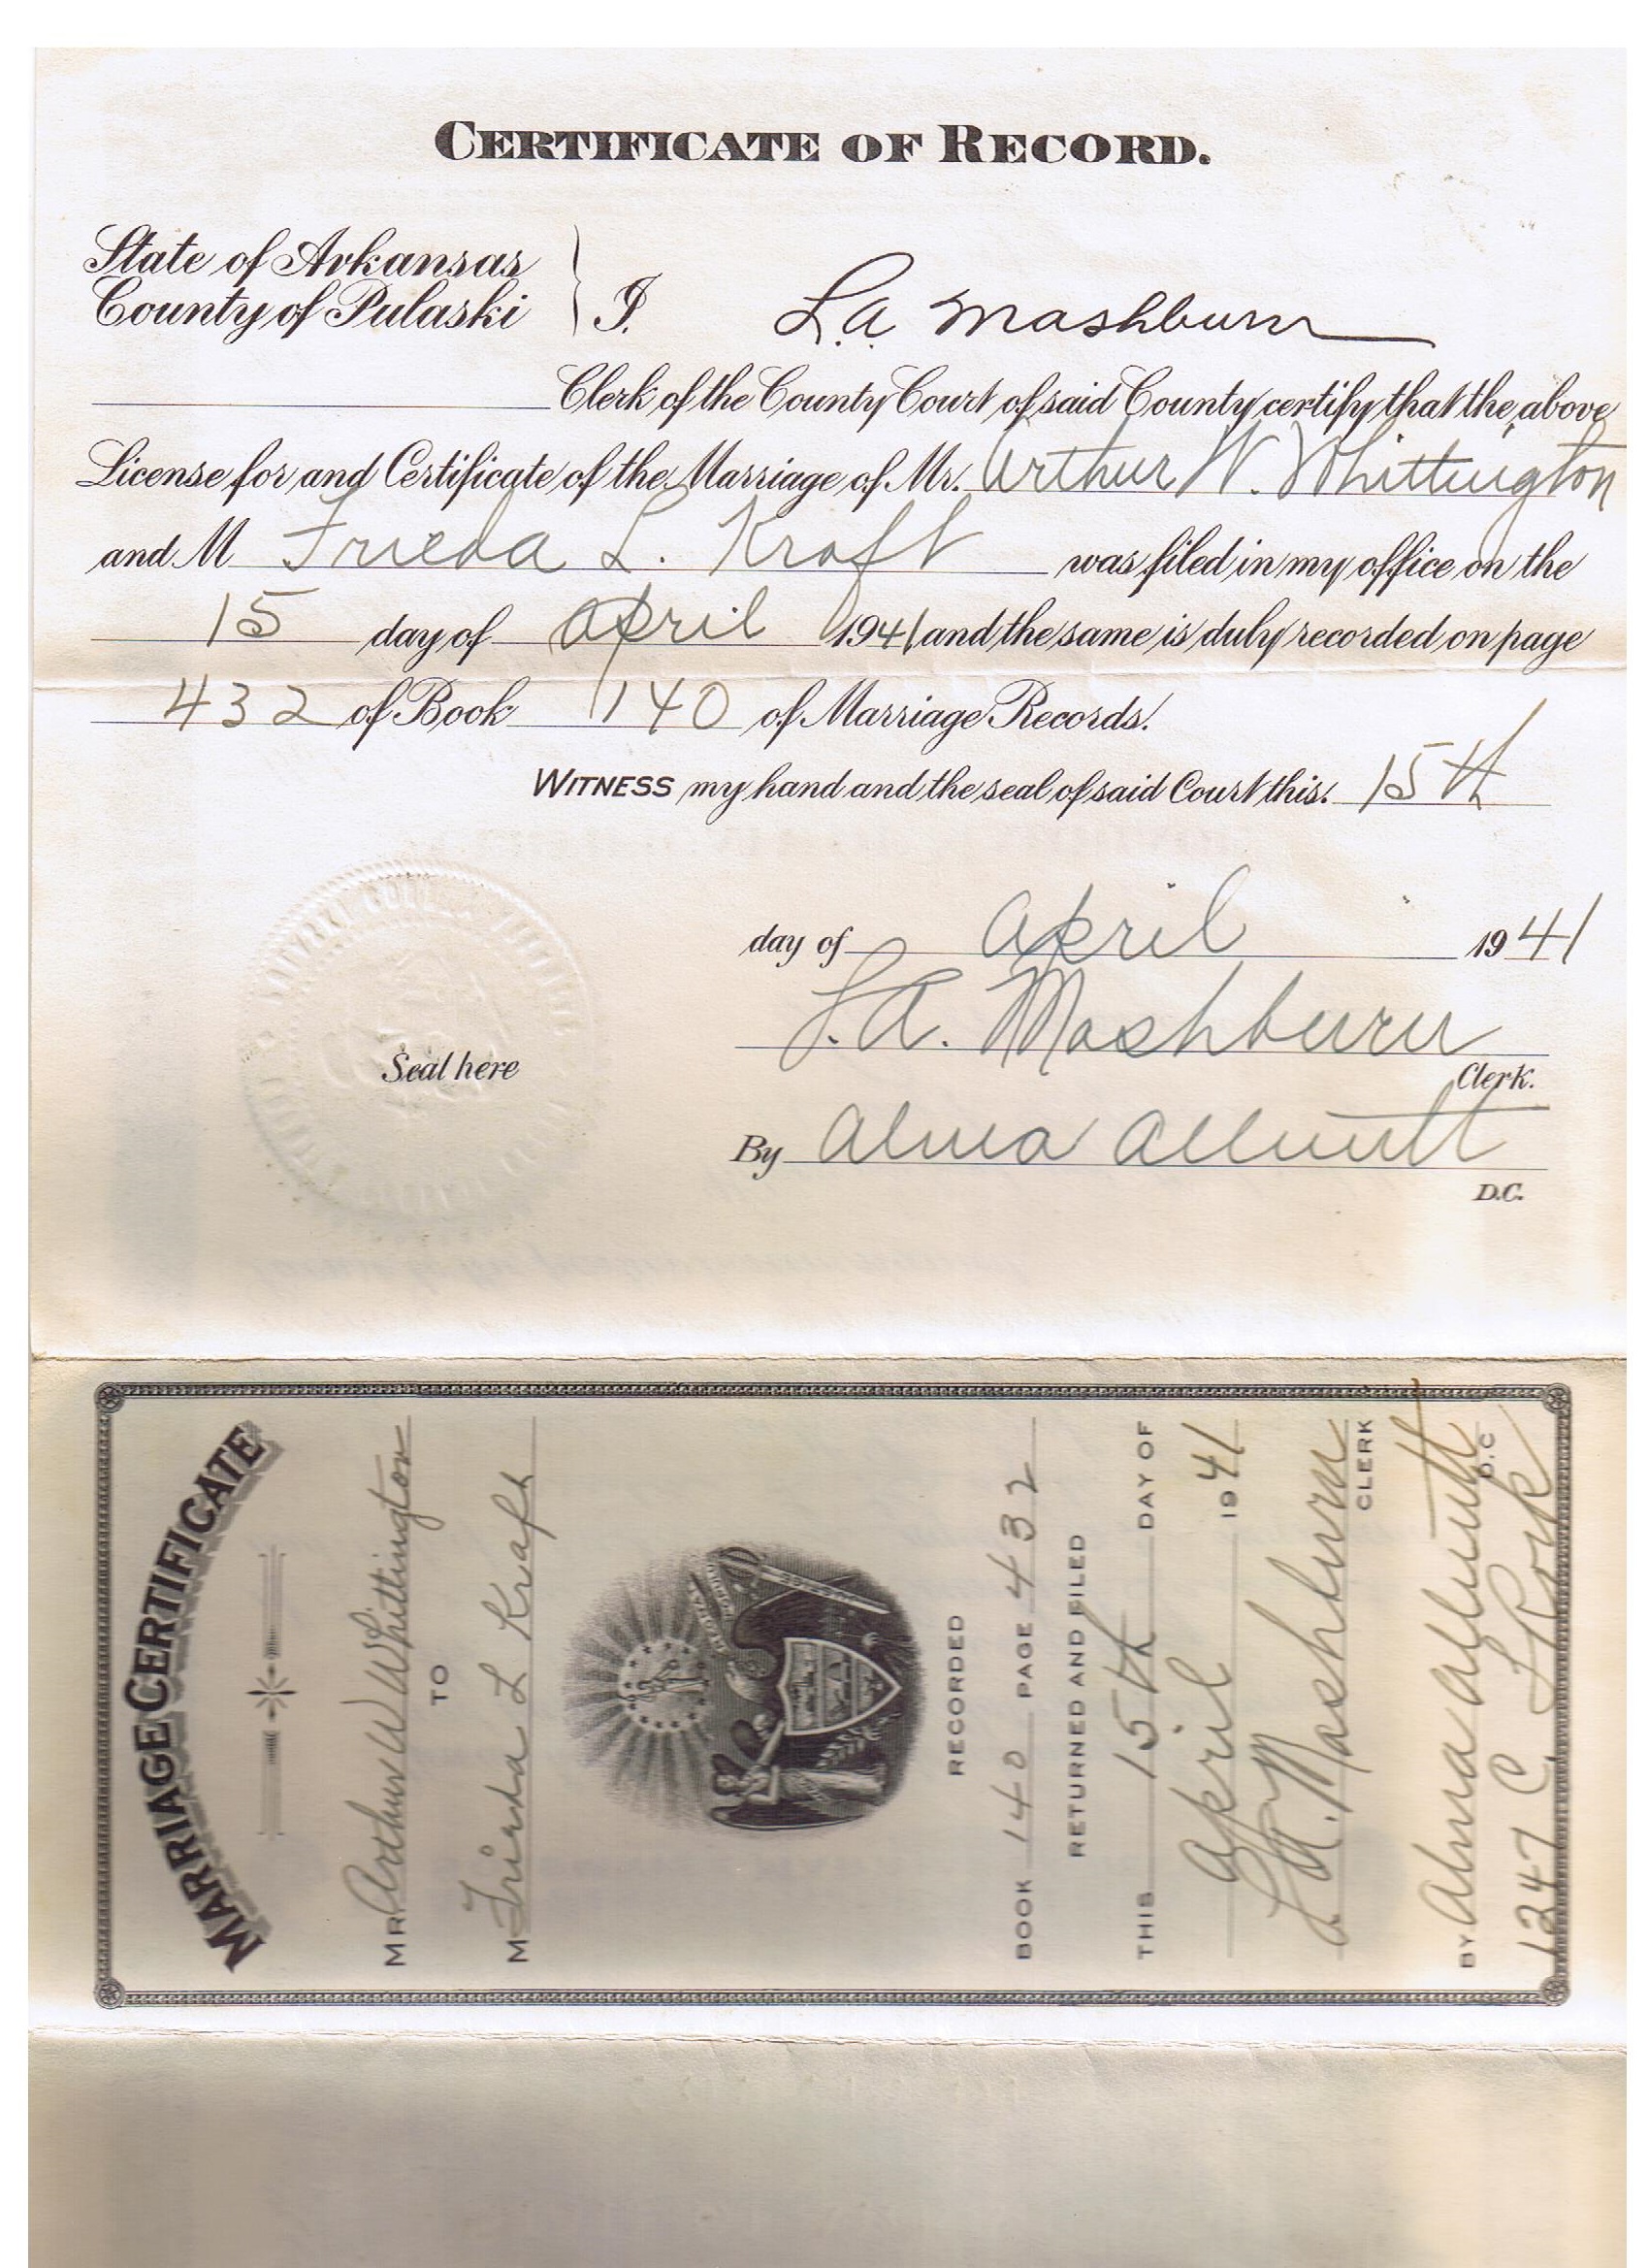 CERTIFICATE OF RECORD.
State of Arkansas
County of Pulaski } I. L.a. Mashburn
Clerk of the County Court of said County certify that the above
License for and Certificate of the Marriage of Mr. Arthur W. Whittington
and M Frieda L. Kraft was filed in my office on the
15 day of April 1941 and the same is duly recorded on page
432 of Book 140 of Marriage Records.
WITNESS my hand and the seal of said Court this. 15th
day of April 1941
L.A. Mashburn
Clerk.
Seal here
By Alma Allnutt
D.C.
MARRIAGE CERTIFICATE
MR Arthur W Whittington
TO
M Frieda L Kraft
RECORDED
BOOK 140 PAGE 432
RETURNED AND FILED
THIS 15th DAY OF
April 1941
L.A. Mashburn
CLERK
BY Alma Allnutt
D.C
1247 C